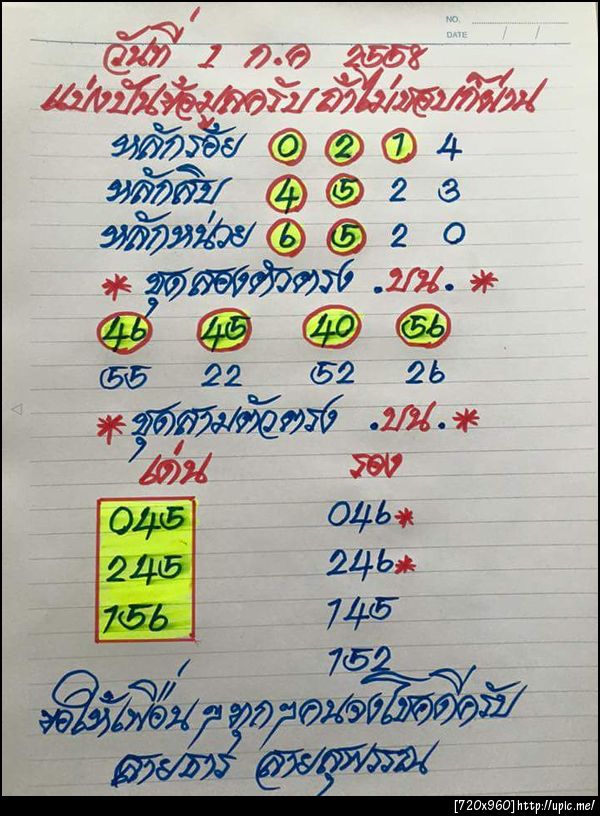 NO.
DATE / /
วันที่ 1 ก.ค 2558
แบ่งปันข้อมูลครับ ถ้าไม่ชอบก็ผ่าน
หลักร้อย 0 2 1 4
หลักสิบ 4 5 2 3
หลักหน่วย 6 5 2 0
* ชุดสองตัวตรง .บน. *
46 45 40 56
55 22 52 26
* ชุดสามตัวตรง .บน. *
เด่น รอง
045 046*
245 246*
156 145
152
ขอให้เพื่อนๆทุกๆคนจงโชคดีครับ
สายธาร สายสุพรรณ
[720x960]http://upic.me/